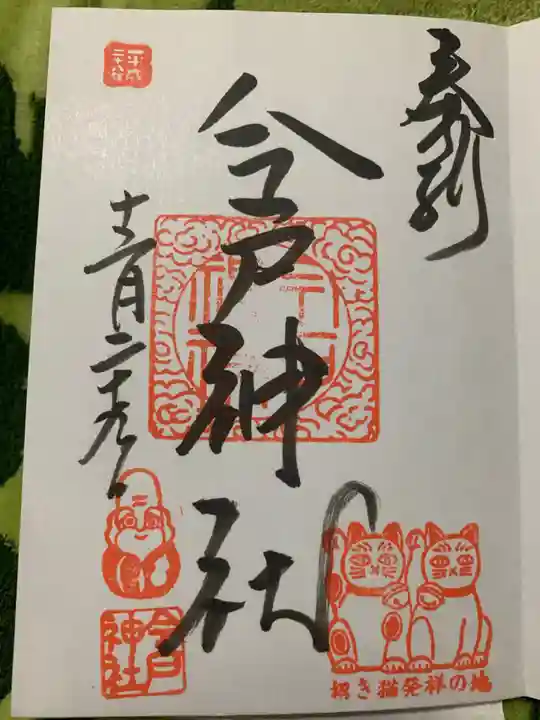 奉拝
今戸神社
平成
二十八年
十二月二十九日
今戸
神社
招き猫発祥の地